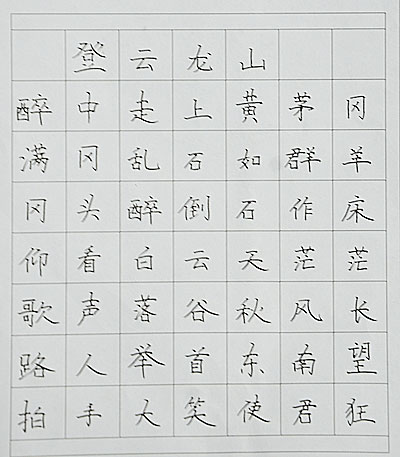 登云龙山
醉中走上黄茅冈
满冈乱石如群羊
冈头醉倒石作床
仰看白云天茫茫
歌声落谷秋风长
路人举首东南望
拍手大笑使君狂